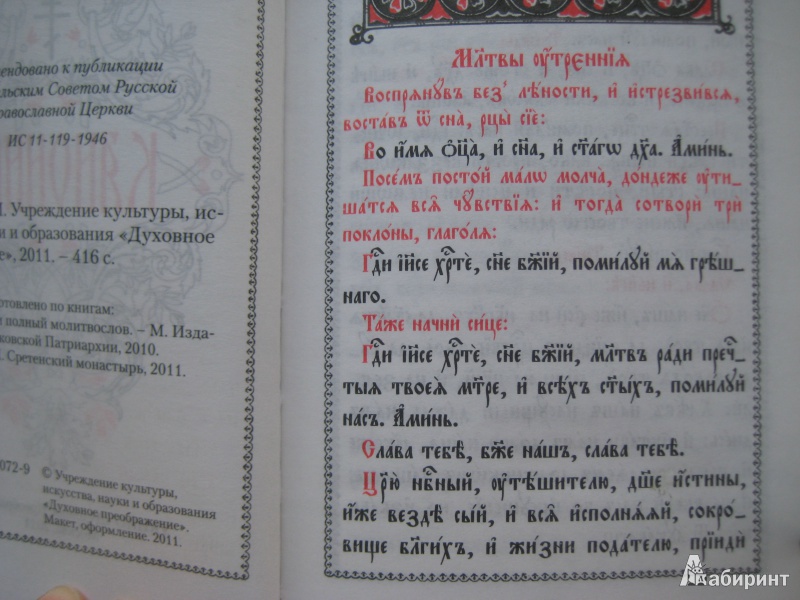 ендовано к публикации
льским Советом Русской
равославной Церкви
ИС 11-119-1946
Учреждение культуры, ис-
и и образования «Духовное
е», 2011. – 416 с.
отовлено по книгам:
й полный молитвослов. – М. Изда-
ковской Патриархии, 2010.
Сретенский монастырь, 2011.
072-9
© Учреждение культуры,
искусства, науки и образования
«Духовное преображение».
Макет, оформление. 2011.
Мл҃твы ᲂу҆́треннїѧ
Воспрѧ́нꙋвъ без̾ лѣ́ности, и҆ и҆стрезви́всѧ,
воста́въ ѿ сна̀, рцы̀ сїѐ:
Во и҆́мѧ ѻ҆ц҃а̀, и҆ сн҃а, и҆ ст҃а́гѡ дх҃а. А҆ми́нь.
Посе́мъ посто́й ма́лѡ мо́лча, до́ндеже ᲂу҆ти-
ша́тсѧ всѧ̑ чꙋ̑вствїѧ: и҆ тогда̀ сотворѝ трѝ
покло́ны, глаго́лѧ:
Гдⷭ҇и і҆и҃се хрⷭ҇тѐ, сн҃е бж҃їй, поми́лꙋй мѧ̀ грѣ́ш-
наго.
Та́же начнѝ си́це:
Гдⷭ҇и і҆и҃се хрⷭ҇тѐ, сн҃е бж҃їй, мл҃твъ ра́ди пречⷭ҇-
тыѧ твоеѧ̀ мт҃ре, и҆ всѣ́хъ ст҃ы́хъ, поми́лꙋй
на́съ. А҆ми́нь.
Сла́ва тебѣ̀, бж҃е на́шъ, сла́ва тебѣ̀.
Цр҃ю̀ нбⷭ҇ный, ᲂу҆тѣ́шителю, дш҃е и҆́стины,
и҆́же вездѣ̀ сы́й, и҆ всѧ̑ и҆сполнѧ́ѧй, сокро́-
вище бл҃ги́хъ, и҆ жи́зни пода́телю, прїидѝ
Лабиринт